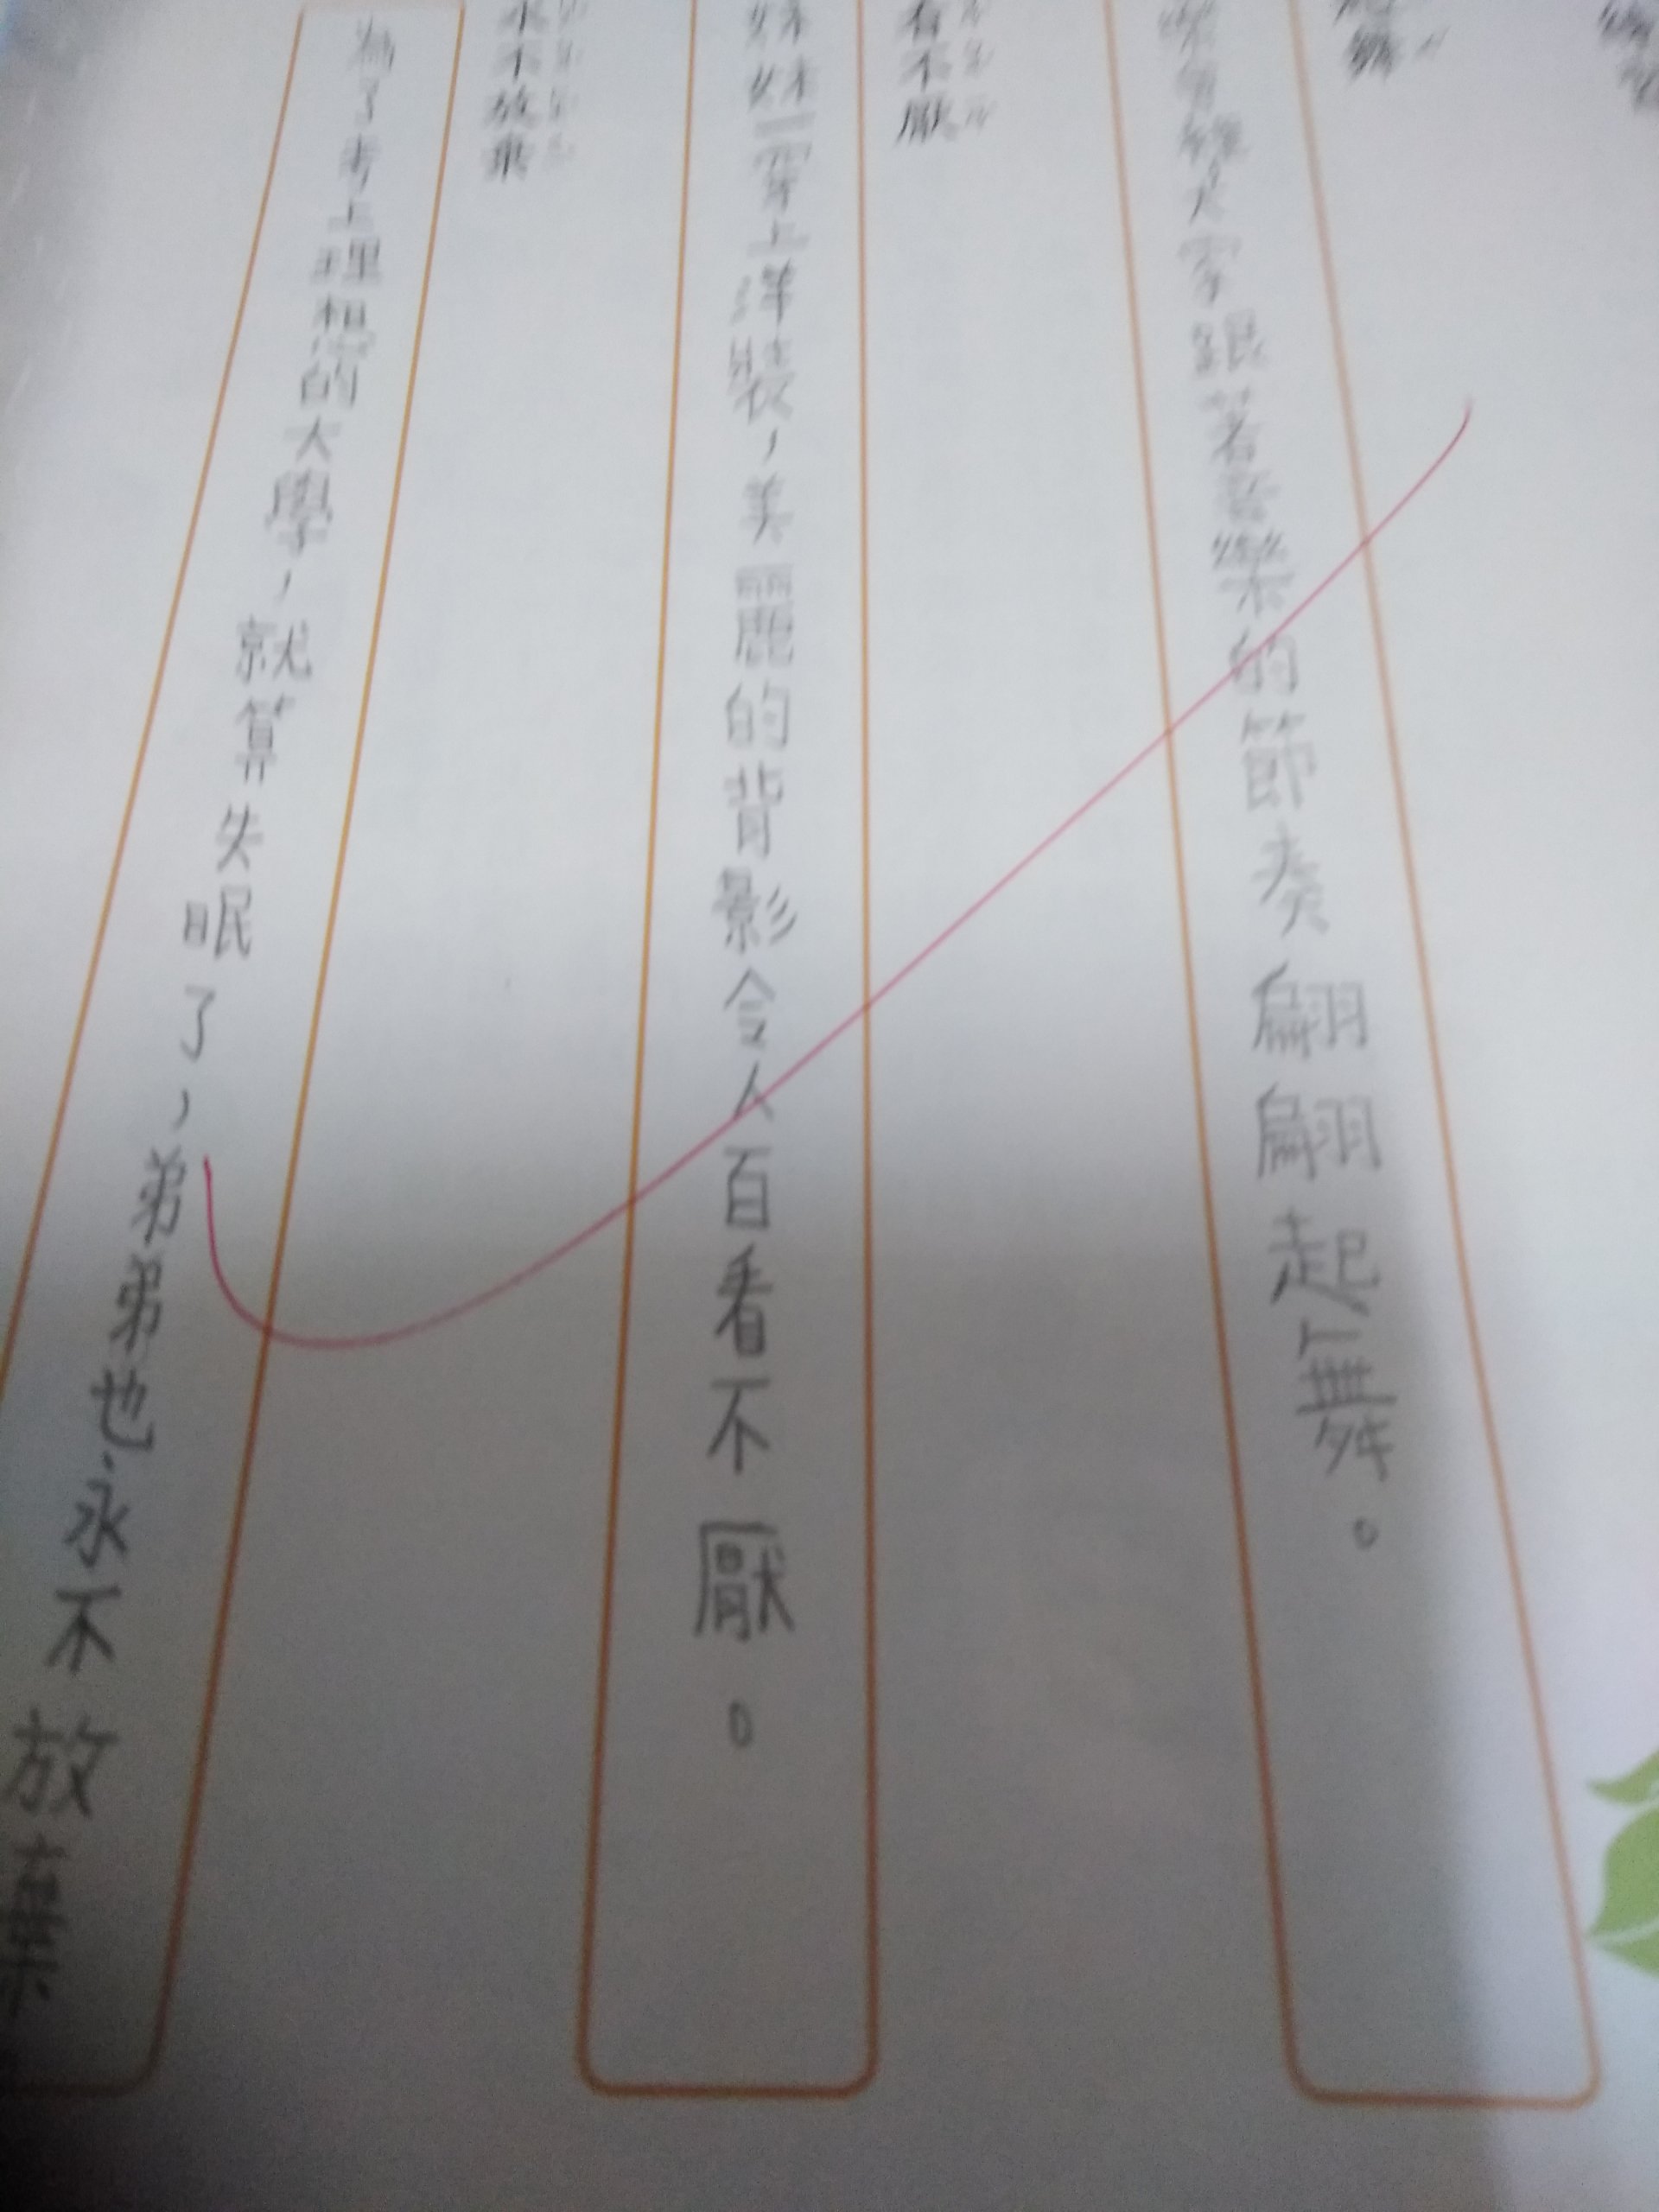 舞
大家跟著音樂的節奏翩翩起舞。
看不厭
妹妹一穿上洋裝，美麗的背影令人百看不厭。
永不放棄
為了考上理想的大學，就算失眠了，弟弟也永不放棄